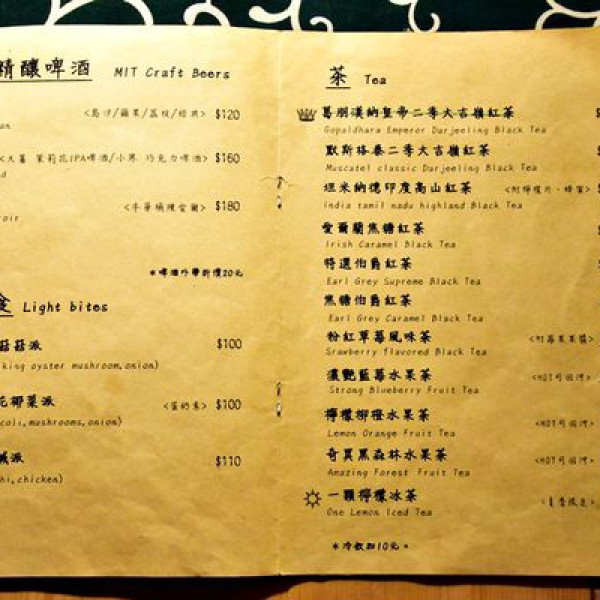 精釀啤酒 MIT Craft Beers
$120
$160
$180
*啤酒外帶折價20元
食 Light bites
菇菇派 $100
king oyster mushroom,onion)
花椰菜派 <蛋奶素> $100
coli,mushrooms,onion)
鹹派 $110
hi,chicken)
茶 Tea
葛朋漢納皇帝二季大吉嶺紅茶
Gopaldhara Emperor Darjeeling Black Tea
默斯格泰二季大吉嶺紅茶
Muscatel classic Darjeeling Black Tea
坦米納德印度高山紅茶 <附檸檬片、蜂蜜>
India tamil nadu highland Black Tea
愛爾蘭焦糖紅茶
Irish Caramel Black Tea
特選伯爵紅茶
Earl Grey Supreme Black Tea
焦糖伯爵紅茶
Earl Grey Caramel Black Tea
粉紅草莓風味茶 <附莓果果醬>
Srawberry flavored Black Tea
濃艷藍莓水果茶 <HOT可回沖>
Strong Blueberry Fruit Tea
檸檬柳橙水果茶 <HOT可回沖>
Lemon Orange Fruit Tea
奇異黑森林水果茶 <HOT可回沖>
Amazing Forest Fruit Tea
一顆檸檬冰茶 <夏季限定>
One Lemon Iced Tea
*冷飲加10元。